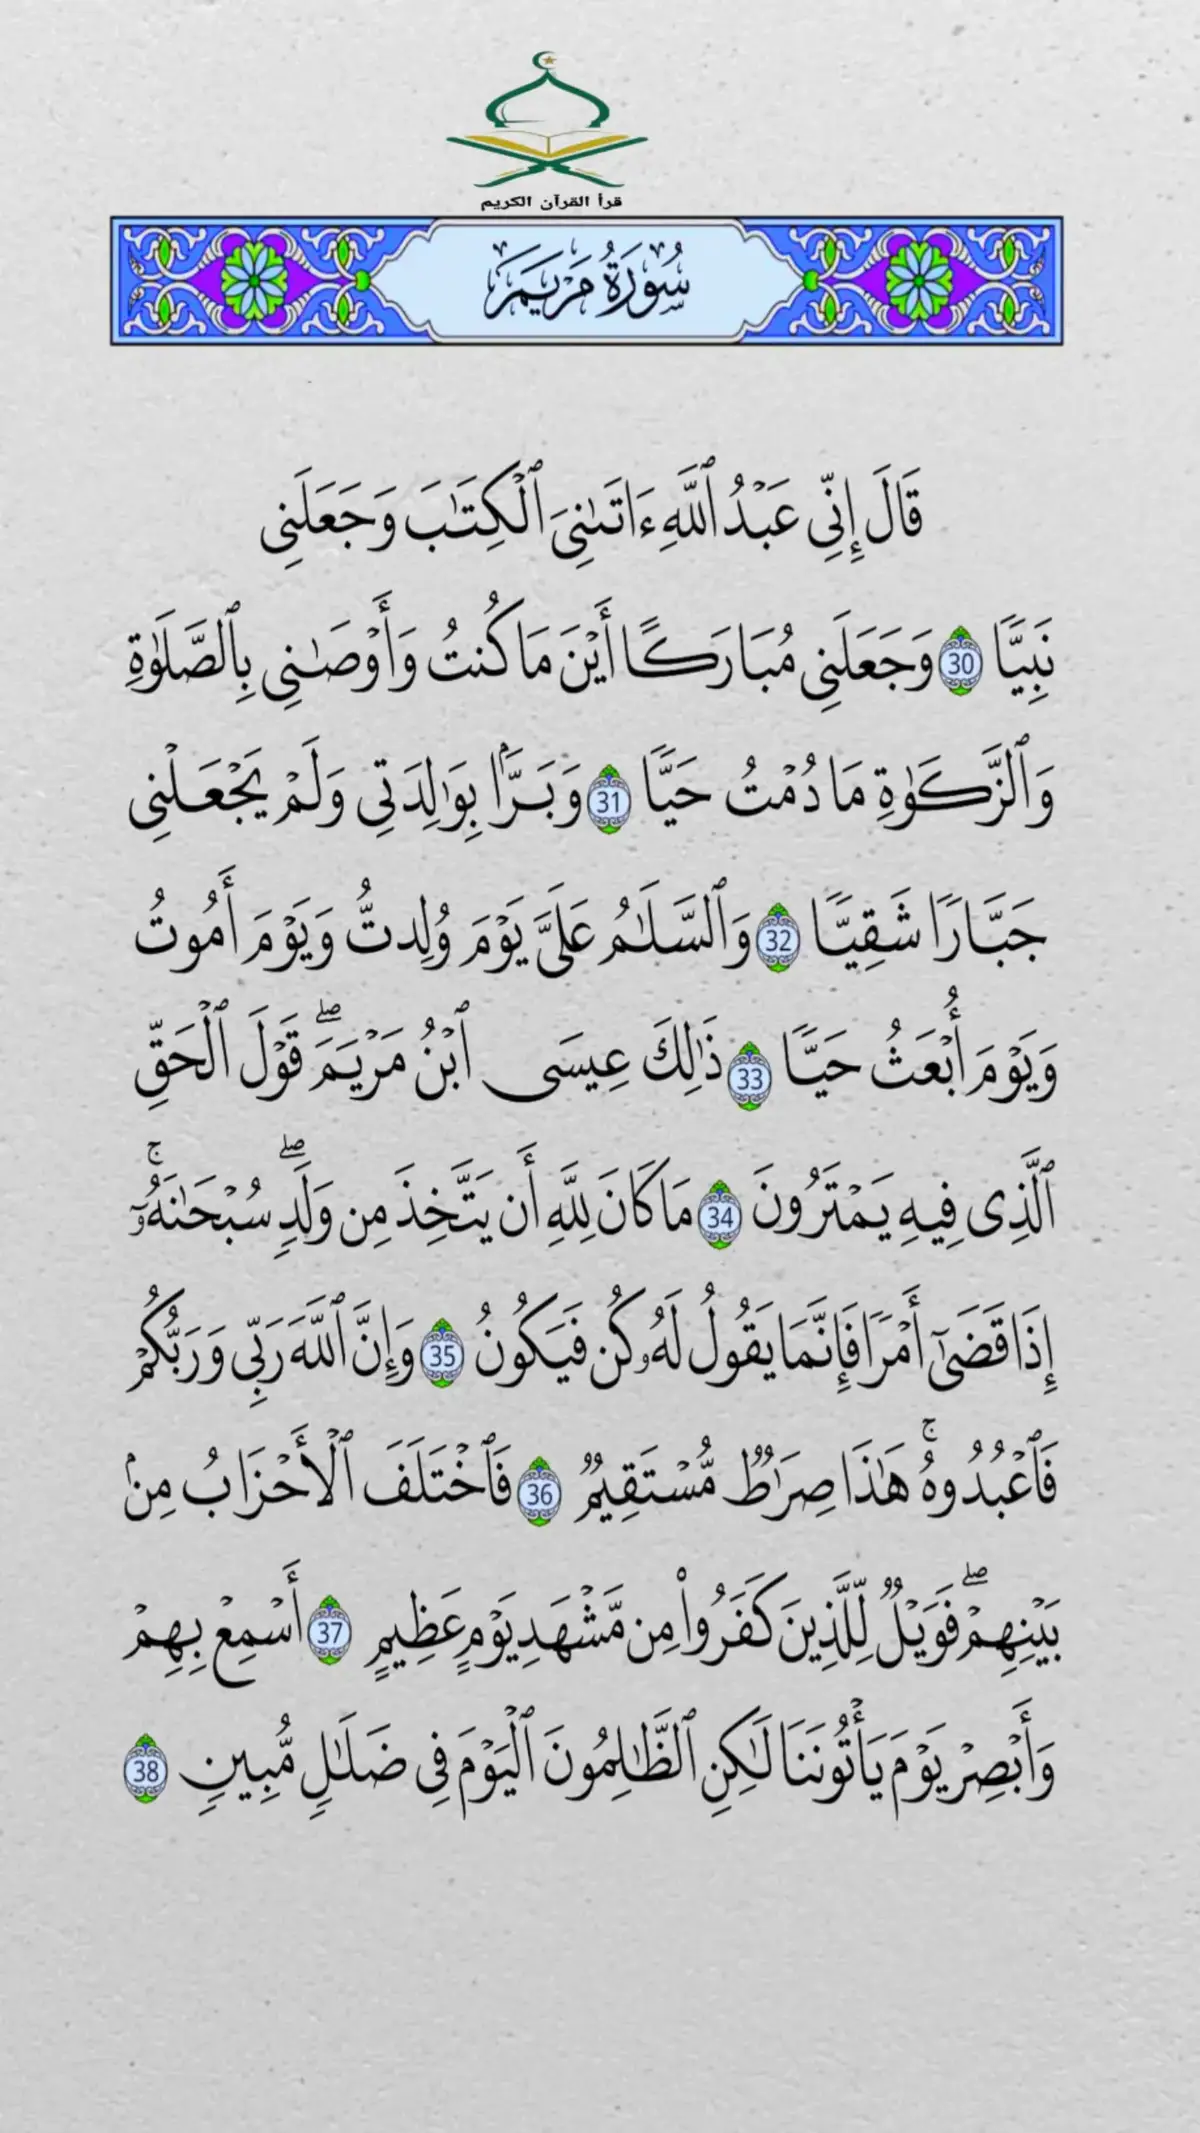 قرأ القرآن الكريم
سُورَةُ مَرۡيَمَ
قَالَ إِنِّي عَبۡدُ ٱللَّهِ ءَاتَىٰنِيَ ٱلۡكِتَٰبَ وَجَعَلَنِي
نَبِيّٗا 30 وَجَعَلَنِي مُبَارَكًا أَيۡنَ مَا كُنتُ وَأَوۡصَٰنِي بِٱلصَّلَوٰةِ
وَٱلزَّكَوٰةِ مَا دُمۡتُ حَيّٗا 31 وَبَرَّۢا بِوَٰلِدَتِي وَلَمۡ يَجۡعَلۡنِي
جَبَّارٗا شَقِيّٗا 32 وَٱلسَّلَٰمُ عَلَيَّ يَوۡمَ وُلِدتُّ وَيَوۡمَ أَمُوتُ
وَيَوۡمَ أُبۡعَثُ حَيّٗا 33 ذَٰلِكَ عِيسَى ٱبۡنُ مَرۡيَمَۖ قَوۡلَ ٱلۡحَقِّ
ٱلَّذِي فِيهِ يَمۡتَرُونَ 34 مَا كَانَ لِلَّهِ أَن يَتَّخِذَ مِن وَلَدٖۖ سُبۡحَٰنَهُۥٓۚ
إِذَا قَضَىٰٓ أَمۡرٗا فَإِنَّمَا يَقُولُ لَهُۥ كُن فَيَكُونُ 35 وَإِنَّ ٱللَّهَ رَبِّي وَرَبُّكُمۡ
فَٱعۡبُدُوهُۚ هَٰذَا صِرَٰطٞ مُّسۡتَقِيمٞ 36 فَٱخۡتَلَفَ ٱلۡأَحۡزَابُ مِنۢ
بَيۡنِهِمۡۖ فَوَيۡلٞ لِّلَّذِينَ كَفَرُواْ مِن مَّشۡهَدِ يَوۡمٍ عَظِيمٍ 37 أَسۡمِعۡ بِهِمۡ
وَأَبۡصِرۡ يَوۡمَ يَأۡتُونَنَا لَٰكِنِ ٱلظَّٰلِمُونَ ٱلۡيَوۡمَ فِي ضَلَٰلٖ مُّبِينٖ 38